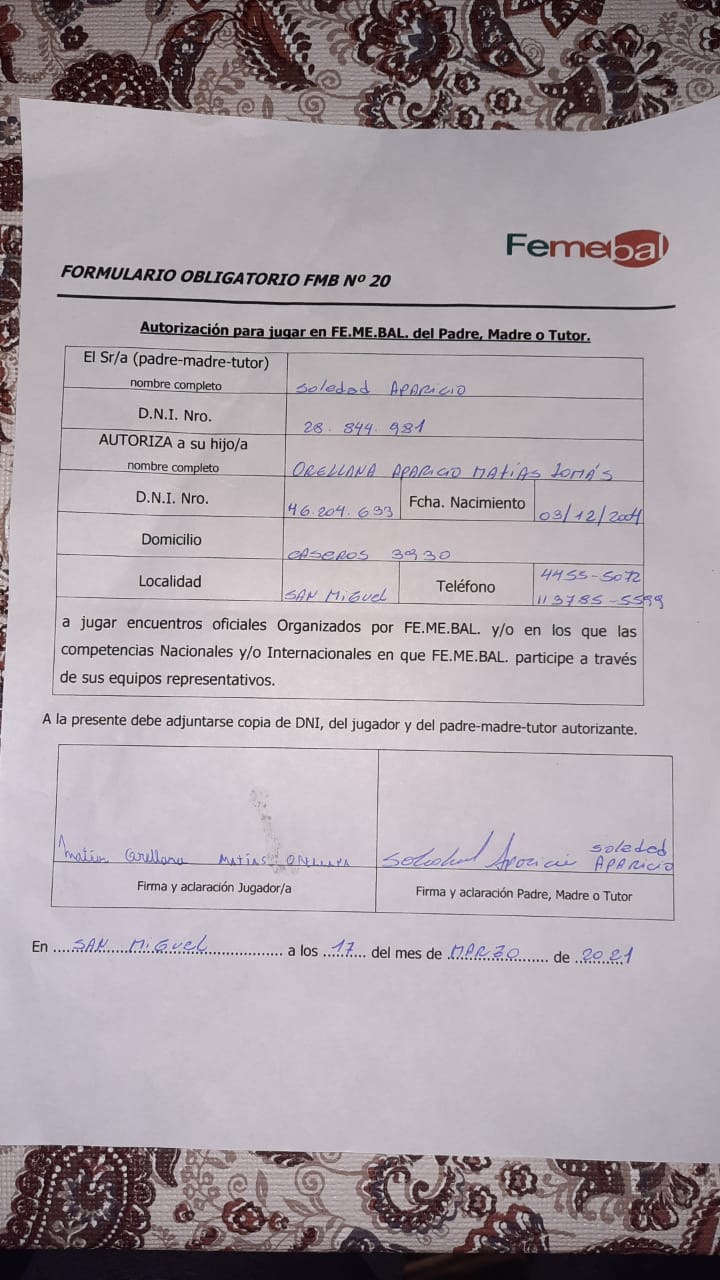 Femebal
FORMULARIO OBLIGATORIO FMB Nº 20
Autorización para jugar en FE.ME.BAL. del Padre, Madre o Tutor.
El Sr/a (padre-madre-tutor)
nombre completo
Soledad APARICIO
D.N.I. Nro.
28.844.981
AUTORIZA a su hijo/a
nombre completo
ORELLANA APARICIO MATÍAS TOMÁS
D.N.I. Nro.
46.204.633
Fcha. Nacimiento
03/12/2004
Domicilio
CASEROS 3930
Localidad
SAN MIGUEL
Teléfono
4455-5072
11 3785-5599
a jugar encuentros oficiales Organizados por FE.ME.BAL. y/o en los que las
competencias Nacionales y/o Internacionales en que FE.ME.BAL. participe a través
de sus equipos representativos.
A la presente debe adjuntarse copia de DNI, del jugador y del padre-madre-tutor autorizante.
Matias Orellana MATÍAS ORELLANA
Soledad Aparicio soledad APARICIO
Firma y aclaración Jugador/a
Firma y aclaración Padre, Madre o Tutor
En ....SAN MIGUEL.... a los ...17.... del mes de .MARZO....... de ..2021